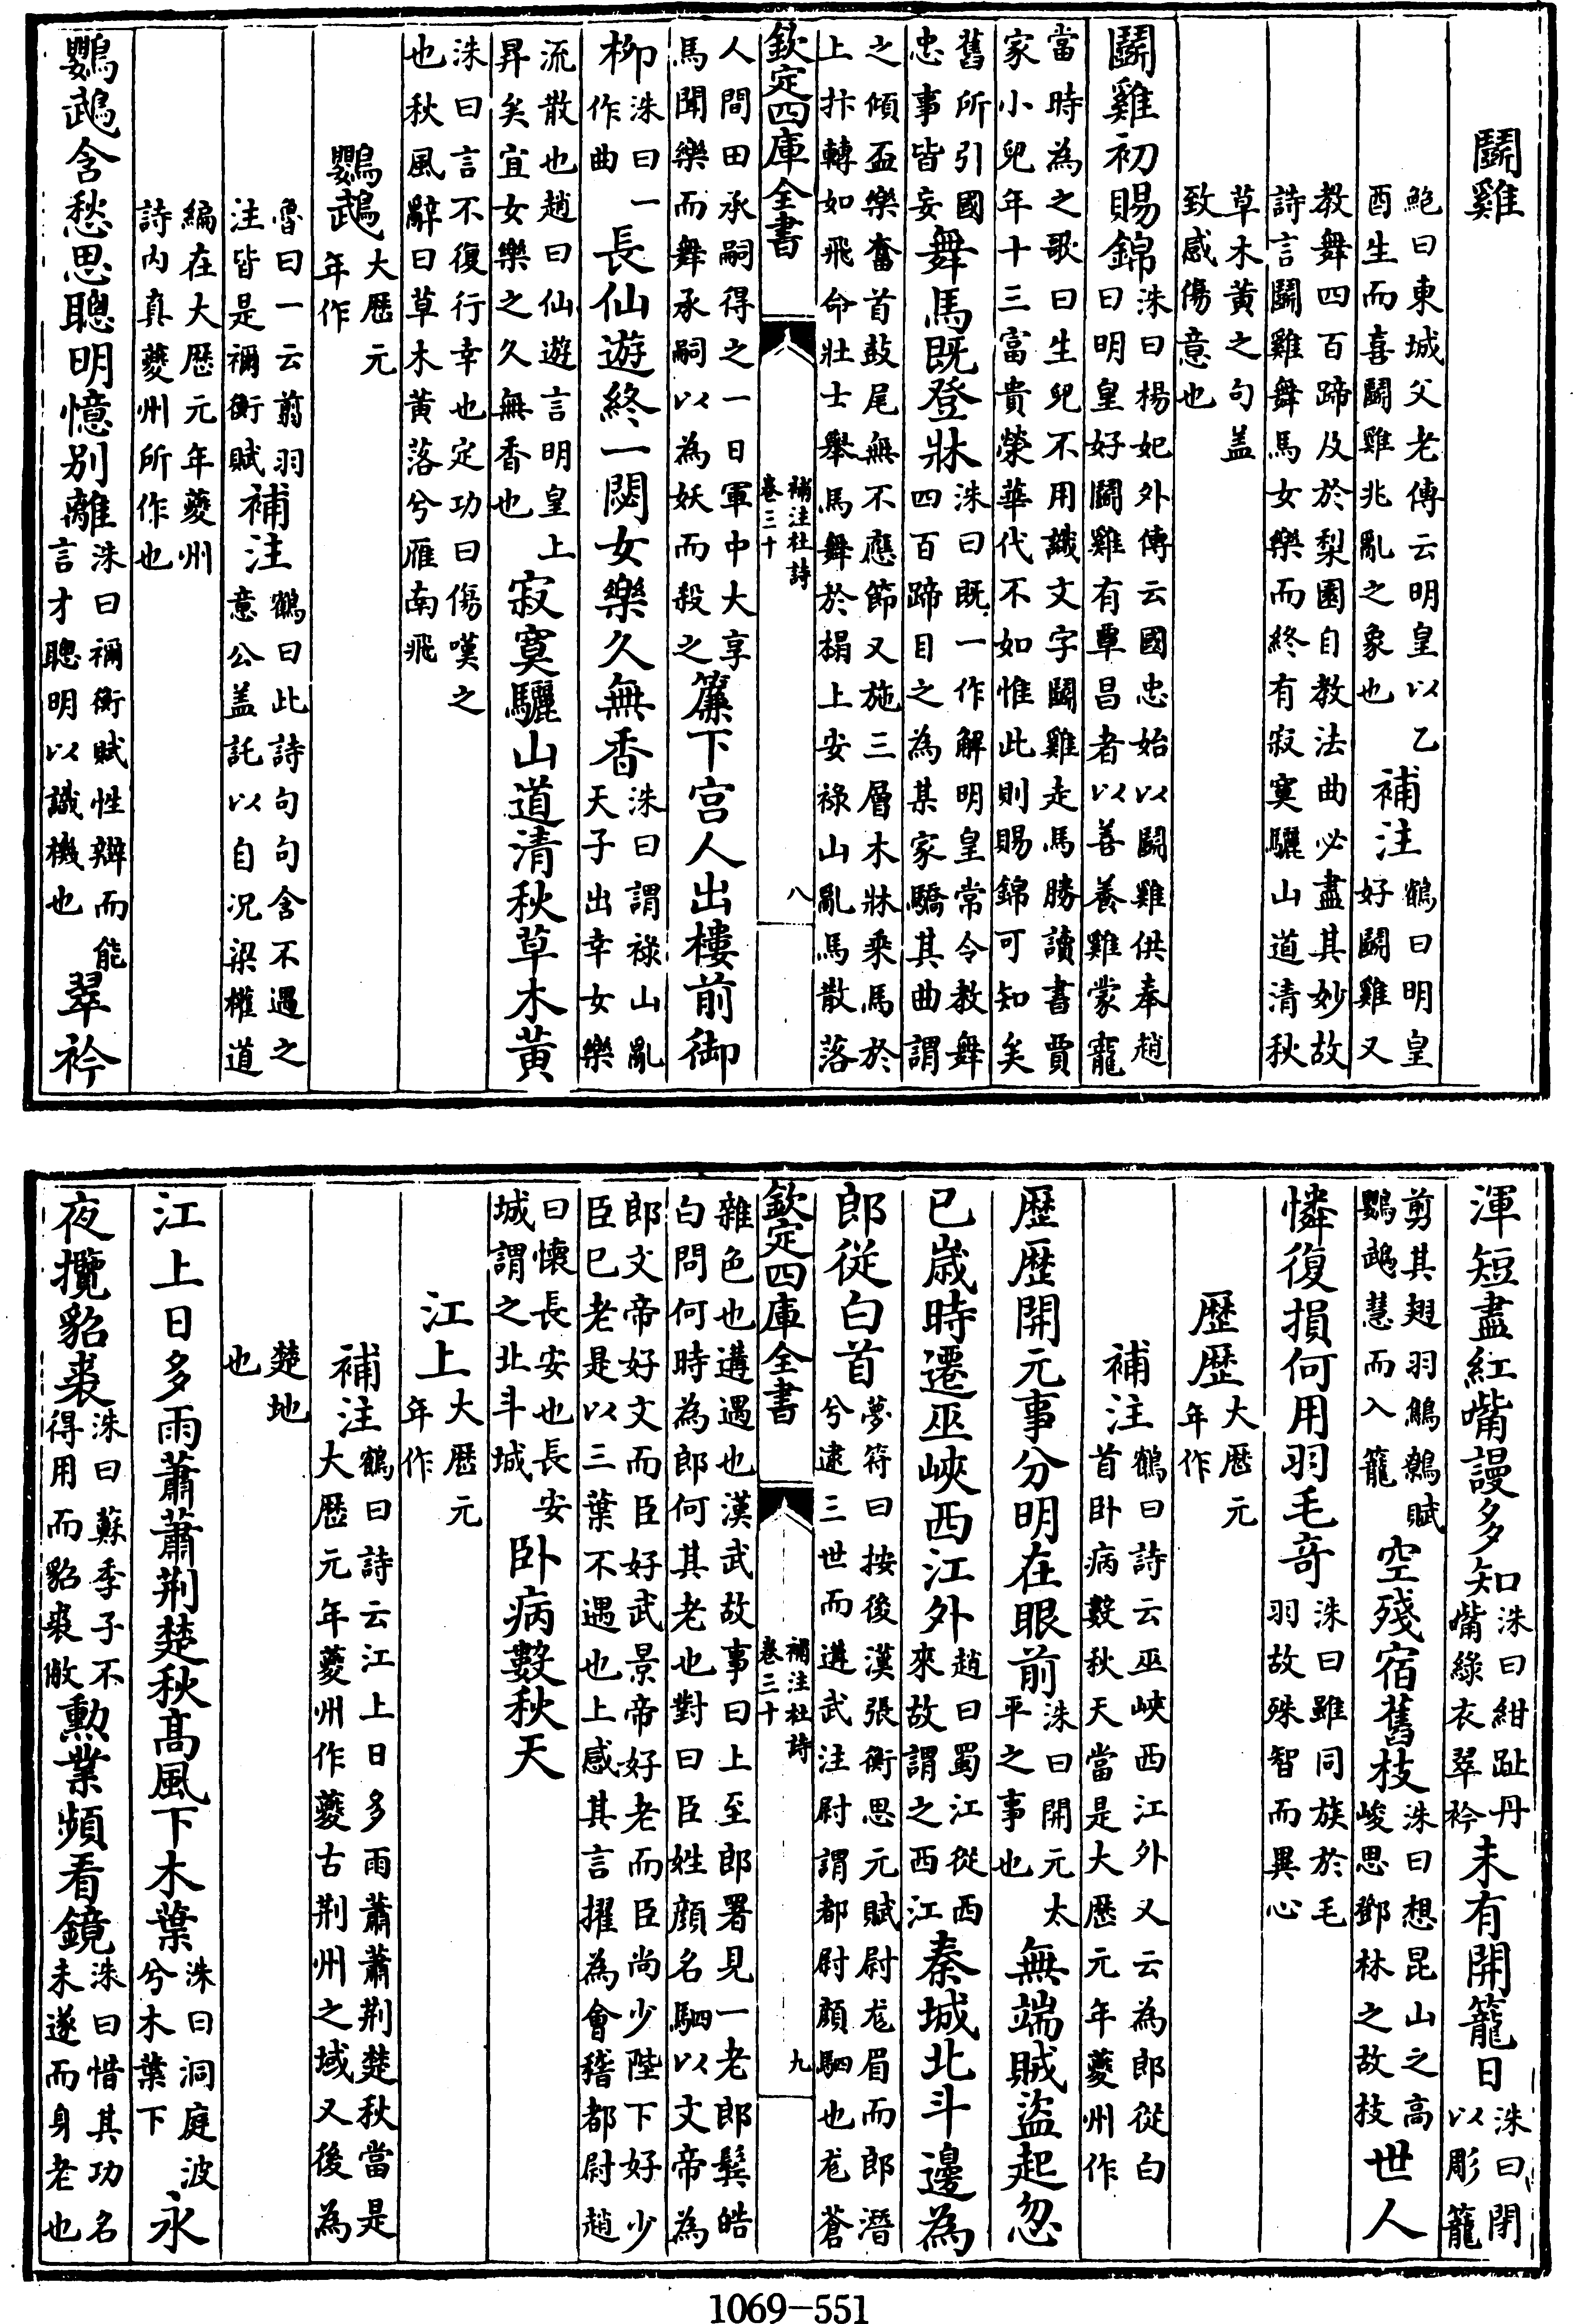 鬬雞
鮑曰東城父老傳云明皇以乙酉生而喜鬬雞兆亂之象也補注鶴曰明皇好鬬雞又
教舞四百蹄及於梨園自教法曲必盡其妙故詩言鬬雞舞馬女樂而終有寂寞驪山道清秋
草木黃之句盖致感傷意也
鬬雞初賜錦洙曰楊妃外傳云國忠始以鬬雞供奉趙曰明皇好鬬雞有覃昌者以善養雞蒙寵
當時為之歌曰生兒不用識文字鬬雞走馬勝讀書賈家小兒年十三富貴榮華代不如惟此則賜錦可知矣
舊所引國忠事皆妄舞馬既登牀洙曰既一作解明皇常令教舞四百蹄目之為某家驕其曲謂
之傾盃樂奮首鼓尾無不應節又施三層木牀乘馬於上抃轉如飛命壯士舉馬舞於榻上安祿山亂馬散落
欽定四庫全書 補注杜詩卷三十 八
人間田承嗣得之一日軍中大享馬聞樂而舞承嗣以為妖而殺之簾下宮人出樓前御
柳洙曰一作曲長仙遊終一閟女樂久無香洙曰謂祿山亂天子出幸女樂
流散也趙曰仙遊言明皇上昇矣宜女樂之久無香也寂寞驪山道清秋草木黃
洙曰言不復行幸也定功曰傷嘆之也秋風辭曰草木黃落兮雁南飛
鸚鵡大厯元年作
魯曰一云翦羽注皆是禰衡賦補注鶴曰此詩句句含不遇之意公盖託以自况梁權道
編在大厯元年夔州詩内真夔州所作也
鸚鵡含愁思聰明憶别離洙曰禰衡賦性辯而能言才聰明以識機也翠衿
渾短盡紅嘴謾多知洙曰紺趾丹嘴綠衣翠衿未有開籠日洙曰閉以彫籠
剪其翅羽鷦鷯賦鸚鵡慧而入籠空殘宿舊枝洙曰想昆山之高峻思鄧林之故枝世人
憐復損何用羽毛奇洙曰雖同族於毛羽故殊智而異心
歷歷大厯元年作
補注鶴曰詩云巫峽西江外又云為郎從白首卧病數秋天當是大厯元年夔州作
歷歷開元事分明在眼前洙曰開元太平之事也無端賊盜起忽
已歲時遷巫峽西江外趙曰蜀江從西來故謂之西江秦城北斗邊為
郎從白首夢符曰按後漢張衡思元賦尉尨眉而郎潛兮逮三世而遘武注尉謂都尉顔駟也尨蒼
欽定四庫全書 補注杜詩卷三十 九
雜色也遘遇也漢武故事曰上至郎署見一老郎鬂皓白問何時為郎何其老也對曰臣姓顔名駟以文帝為
郎文帝好文而臣好武景帝好老而臣尚少陛下好少臣已老是以三葉不遇也上感其言擢為會稽都尉趙
曰懷長安也長安城謂之北斗城卧病數秋天
江上大厯元年作
補注鶴曰詩云江上日多雨蕭蕭荆楚秋當是大厯元年夔州作夔古荆州之域又後為
楚地也
江上日多雨蕭蕭荆楚秋高風下木葉洙曰洞庭波兮木葉下永
夜攬貂裘洙曰蘇季子不得用而貂裘敝勲業頻看鏡洙曰惜其功名未遂而身老也
1069-551